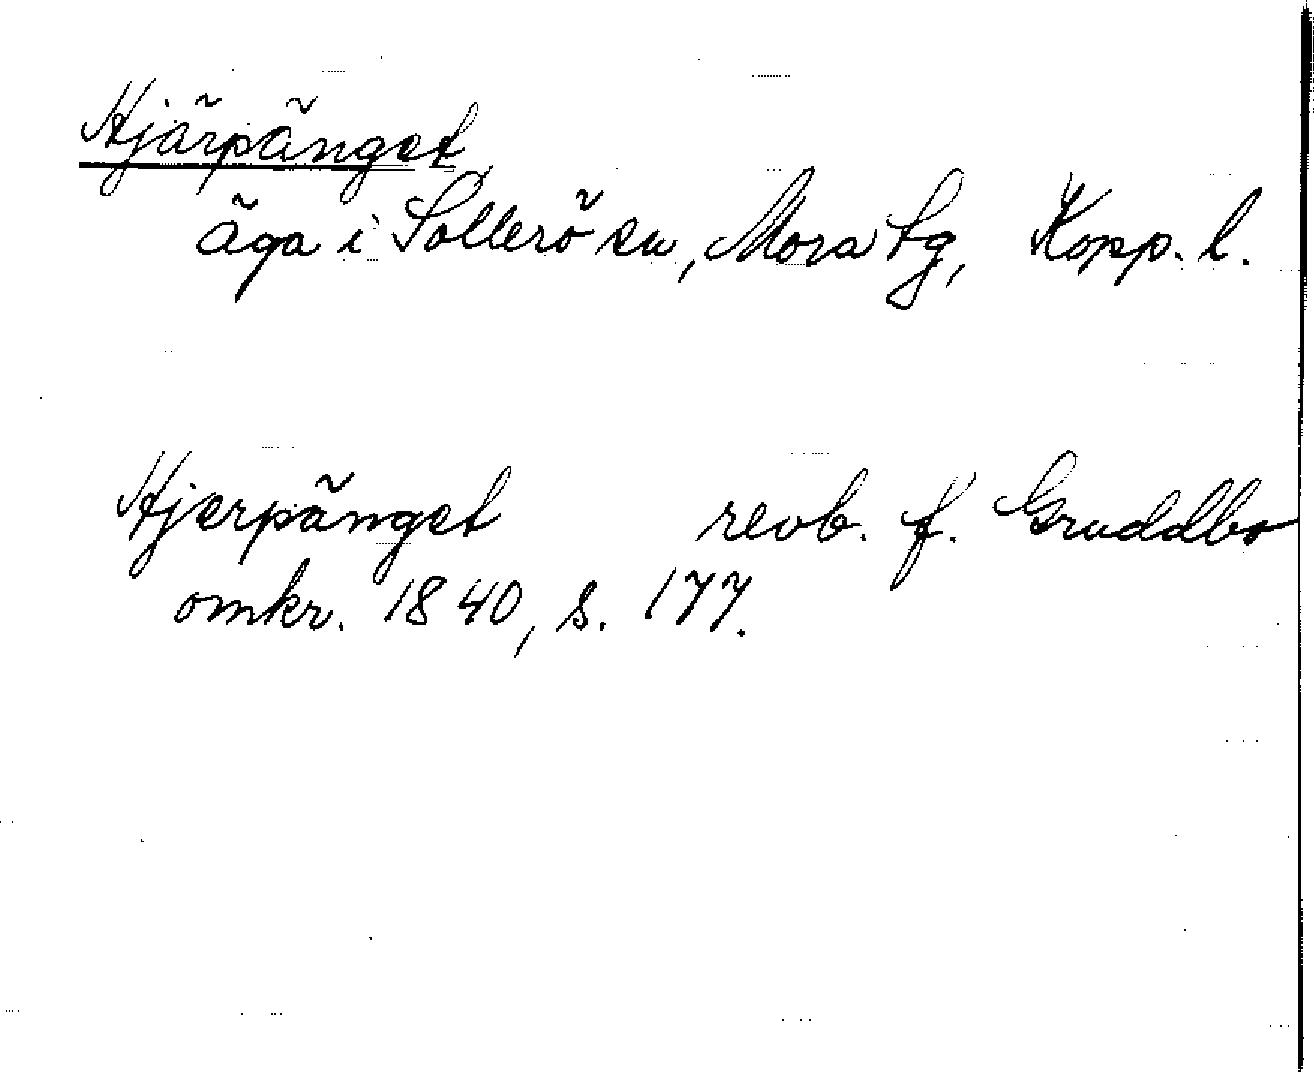 Hjärpänget
äga i Sollerö sn, Mora tg, Kopp. l.
Hjerpänget revb. f. Gruddbo
omkr. 1840, s. 177.